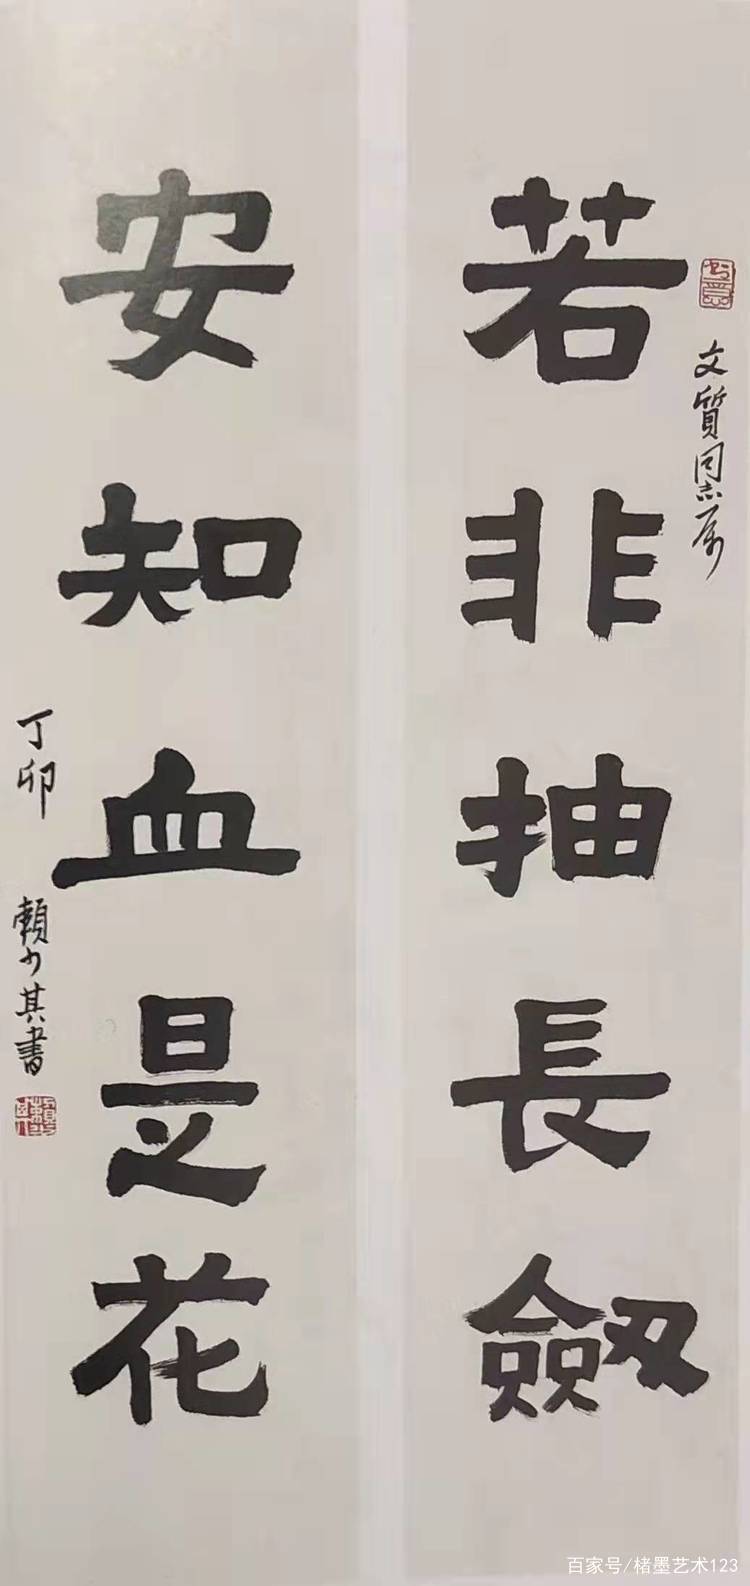 文質同志属
若非抽長劔
安知血是花
丁卯
賴少其書
百家号/楮墨艺术123